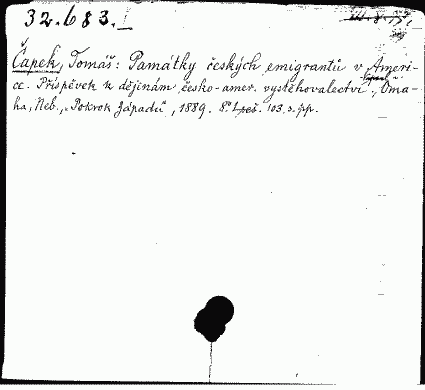 32.683.I
Čapek, Tomáš: Památky českých emigrantů v Ameri-
ce. Příspěvek k dějinám česko-amer. vystěhovalectví., Oma-
ha, Neb., "Pokrok Západu", 1889. 8°. 103. s. pp.